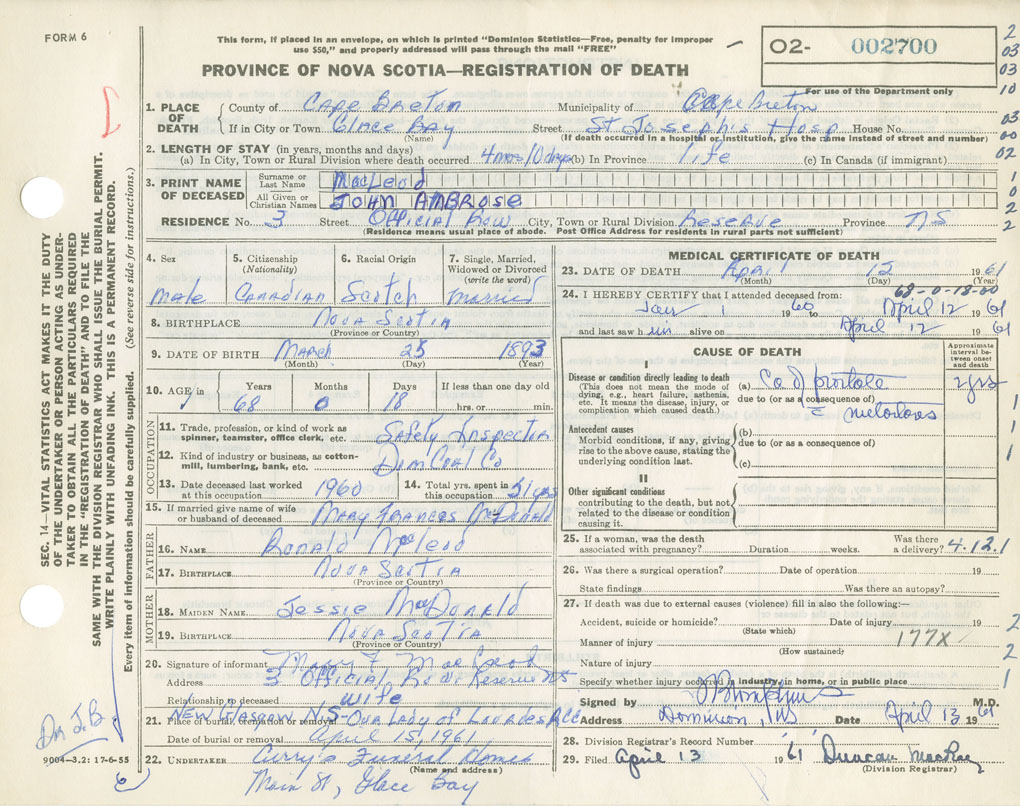 FORM 6
This form, if placed in an envelope, on which is printed "Dominion Statistics—Free, penalty for improper
use $50," and properly addressed will pass through the mail "FREE"
O2- 002700
For use of the Department only
PROVINCE OF NOVA SCOTIA—REGISTRATION OF DEATH
1. PLACE OF DEATH
County of Cape Breton Municipality of Cape Breton
If in City or Town Glace Bay Street St Joseph's Hosp House No.
(Name) (If death occurred in a hospital or institution, give the name instead of street and number)
2. LENGTH OF STAY (in years, months and days)
(a) In City, Town or Rural Division where death occurred 4 mos 10 days (b) In Province life (c) In Canada (if immigrant)
3. PRINT NAME OF DECEASED
Surname or Last Name MacLeod
All Given or Christian Names JOHN AMBROSE
RESIDENCE No. 3 Street Official Row City, Town or Rural Division Reserve Province NS
(Residence means usual place of abode. Post Office Address for residents in rural parts not sufficient)
4. Sex Male
5. Citizenship (Nationality) Canadian
6. Racial Origin Scotch
7. Single, Married, Widowed or Divorced (write the word) Married
8. BIRTHPLACE Nova Scotia
(Province or Country)
9. DATE OF BIRTH March 25 1893
(Month) (Day) (Year)
10. AGE in Years 68 Months 0 Days 18 If less than one day old hrs. or min.
OCCUPATION
11. Trade, profession, or kind of work as spinner, teamster, office clerk, etc. Safety Inspector
12. Kind of industry or business, as cotton-mill, lumbering, bank, etc. Dom Coal Co
13. Date deceased last worked at this occupation 1960
14. Total yrs. spent in this occupation 51 yrs
15. If married give name of wife or husband of deceased Mary Frances McDonald
FATHER
16. NAME Ronald McLeod
17. BIRTHPLACE Nova Scotia
(Province or Country)
MOTHER
18. MAIDEN NAME Jessie MacDonald
19. BIRTHPLACE Nova Scotia
(Province or Country)
20. Signature of informant Mary F. MacLeod
Address 3 Official Row Reserve NS
Relationship to deceased wife
21. Place of burial, cremation or removal New Glasgow NS - Our Lady of Lourdes RCC
Date of burial or removal April 15, 1961
22. UNDERTAKER Curry's Funeral Homes
(Name and address)
Main St, Glace Bay
MEDICAL CERTIFICATE OF DEATH
23. DATE OF DEATH April 12 1961
(Month) (Day) (Year)
68-0-18-00
24. I HEREBY CERTIFY that I attended deceased from:
Jan 1 1960 to April 12 1961
and last saw him alive on April 12 1961
CAUSE OF DEATH
Approximate interval between onset and death
I
Disease or condition directly leading to death
(This does not mean the mode of dying, e.g., heart failure, asthenia, etc. It means the disease, injury, or complication which caused death.)
(a) Ca of prostate 2 yrs
due to (or as a consequence of)
Antecedent causes
Morbid conditions, if any, giving rise to the above cause, stating the underlying condition last.
(b)
due to (or as a consequence of)
(c)
II
Other significant conditions
contributing to the death, but not related to the disease or condition causing it.
25. If a woman, was the death associated with pregnancy? Duration weeks. Was there a delivery? 4.12.1
26. Was there a surgical operation? Date of operation 19
State findings Was there an autopsy?
27. If death was due to external causes (violence) fill in also the following:—
Accident, suicide or homicide? Date of injury 19
(State which)
Manner of injury 177X
(How sustained)
Nature of injury
Specify whether injury occurred in industry, in home, or in public place
Signed by M.D.
Address Dominion, NS Date April 13 1961
28. Division Registrar's Record Number
29. Filed April 13 1961 Duncan MacRae
(Division Registrar)
SEC. 14—VITAL STATISTICS ACT MAKES IT THE DUTY
OF THE UNDERTAKER OR PERSON ACTING AS UNDER-
TAKER TO OBTAIN ALL THE PARTICULARS REQUIRED
IN THE "REGISTRATION OF DEATH" AND FILE THE
SAME WITH THE DIVISION REGISTRAR WHO SHALL ISSUE THE BURIAL PERMIT.
WRITE PLAINLY WITH UNFADING INK. THIS IS A PERMANENT RECORD.
Every item of information should be carefully supplied. (See reverse side for instructions.)
9004-3.2: 17-6-55
2
03
03
10
03
00
02
1
0
2
2
1
1
1
2
2
1